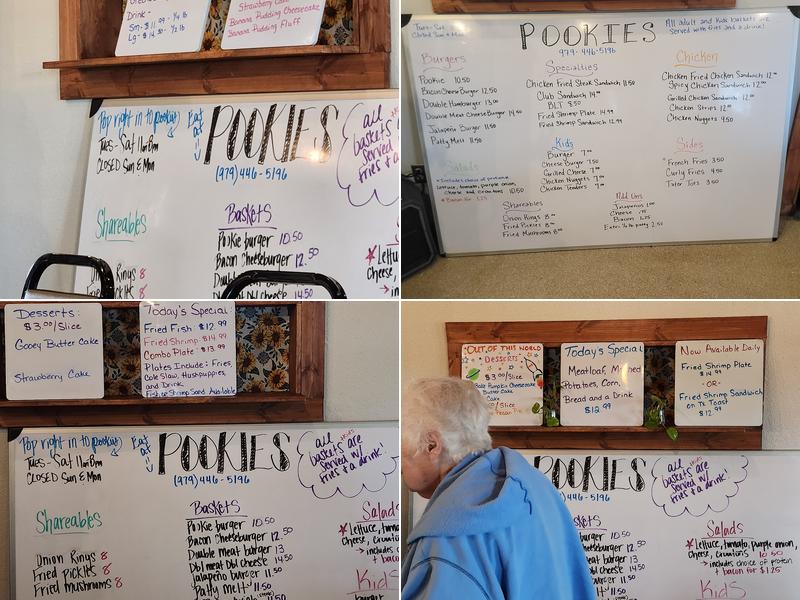 Drink -
Sm - $11.99 - 1/4 lb
Lg - $14.50 - 1/2 lb
Strawberry Cake
Banana Pudding Cheesecake
Banana Pudding Fluff
Pop right in to pookies
Tues - Sat 11am-8pm
CLOSED Sun & Mon
Eat at
POOKIES
(979) 446-5196
all
baskets
served
fries + a
Shareables
Baskets
Pookie burger 10.50
Bacon cheeseburger 12.50
Rings 8
14.50
Lettu
Cheese,
Tues - Sat
Closed Sun & Mon
POOKIES
979-446-5196
All adult and kids baskets are
served with fries and a drink!
Burgers
Pookie 10.50
Bacon Cheese Burger 12.50
Double Hamburger 13.00
Double Meat Cheese Burger 14.50
Jalapeño Burger 11.50
Patty Melt 11.50
Salads
*Includes choice of protein
Lettuce, tomato, purple onion,
Cheese and Croutons 10.50
* Bacon for 1.25
Specialties
Chicken Fried Steak Sandwich 11.50
Club Sandwich 14.00
BLT 8.50
Fried Shrimp Plate 14.99
Fried Shrimp Sandwich 12.99
Kids
Burger 7.00
Cheese Burger 7.50
Grilled Cheese 7.00
Chicken Nuggets 7.00
Chicken Tenders 7.00
Shareables
Onion Rings 8.00
Fried Pickles 8.00
Fried Mushrooms 8.00
Chicken
Chicken Fried Chicken Sandwich 12.00
Spicy Chicken Sandwich 12.00
Grilled Chicken Sandwich 12.00
Chicken Strips 12.00
Chicken Nuggets 9.50
Sides
French Fries 3.50
Curly Fries 4.50
Tater Tots 3.50
Add Ons
Jalapenos 1.00
Cheese .75
Bacon 1.25
Extra 1/4 lb patty 2.50
Desserts:
$3.00/Slice
Gooey Butter Cake
Strawberry Cake
Today's Special
Fried Fish: $12.99
Fried Shrimp: $14.99
Combo Plate: $13.99
Plates Include: Fries,
Cole Slaw, Hushpuppies,
and Drink.
Fish or Shrimp Sand. Available
Pop right in to pookies
Tues - Sat 11am-8pm
CLOSED Sun & Mon
Eat at
POOKIES
(979) 446-5196
all kids
baskets are
served w/
fries + a drink!
Shareables
Onion Rings 8
Fried Pickles 8
Fried mushrooms 8
Baskets
Pookie burger 10.50
Bacon cheeseburger 12.50
Double meat burger 13
Dbl meat Dbl cheese 14.50
Jalapeño burger 11.50
Patty melt 11.50
Salads
*Lettuce, tom
Cheese, crouton
→ includes
+ bacon
Kids
OUT OF THIS WORLD
DESSERTS
$3.00/Slice
Pumpkin Cheesecake
Butter Cake
Cake
/Slice
Pecan Pie
Today's Special
Meatloaf, Mashed
Potatoes, Corn,
Bread and a Drink
$12.99
Now Available Daily
Fried Shrimp Plate
$14.99
-OR-
Fried Shrimp Sandwich
on Tx Toast
$12.99
POOKIES
446-5196
all kids
baskets are
served w/
fries + a drink!
burger 10.50
cheeseburger 12.50
meat burger 13
cheese 14.50
burger 11.50
11.50
Salads
*Lettuce, tomato, purple onion,
Cheese, croutons 10.50
→ includes choice of protein
+ bacon for $1.25
Kids